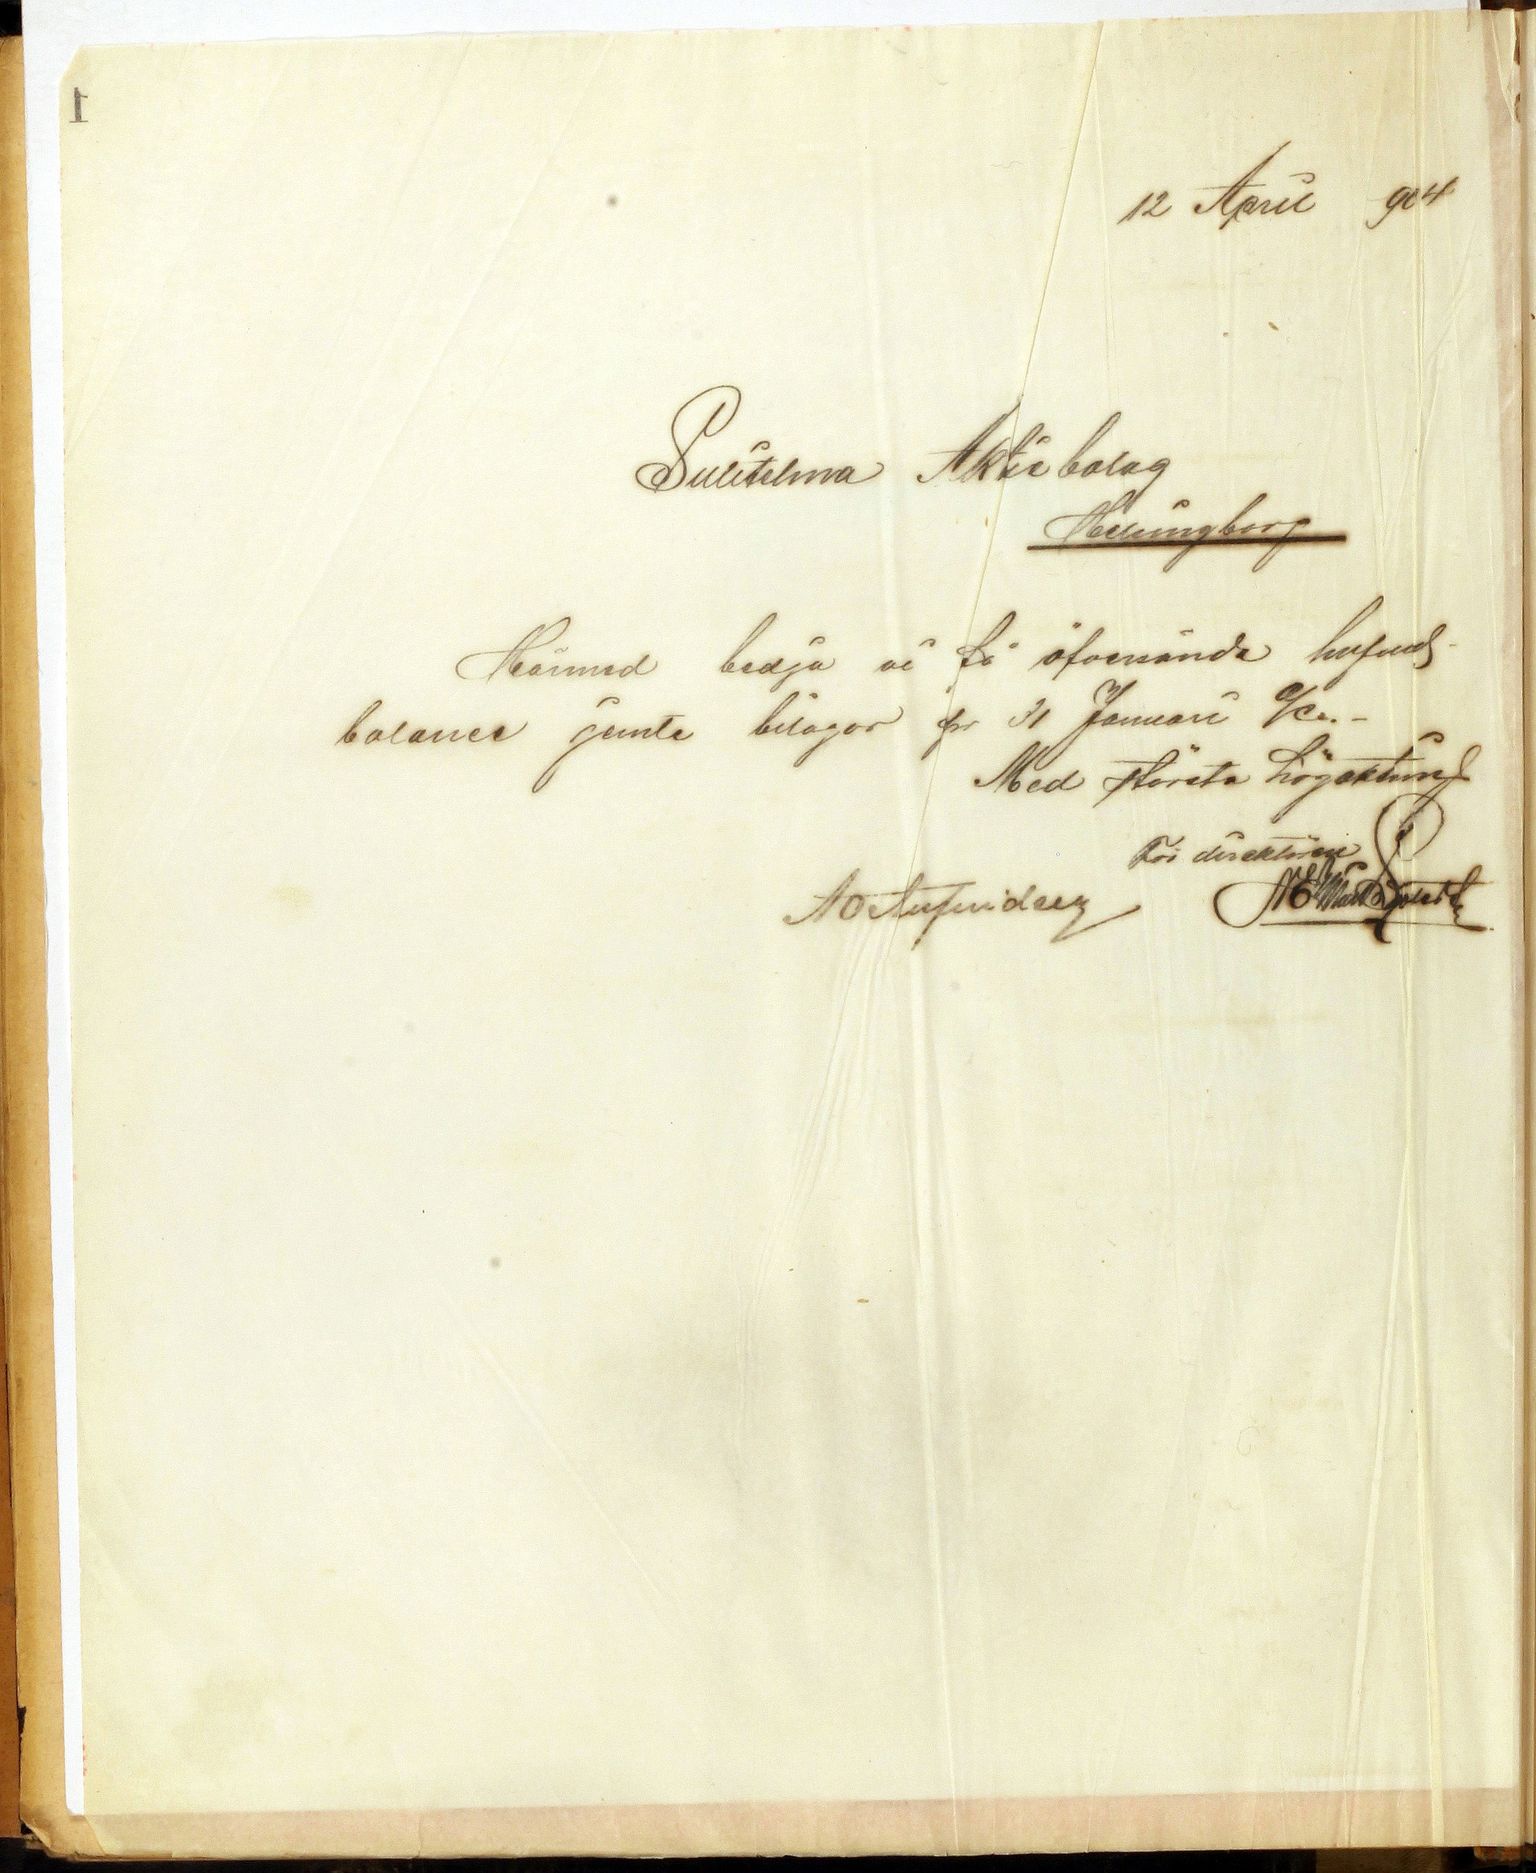 1
12 April 904
Sulitelma Aktiebolag
Helsingborg
Härmed bedja vi få öfversända hufvud-
balance jemte bilagor pr 31 Januari
Med största högaktning
För direktören